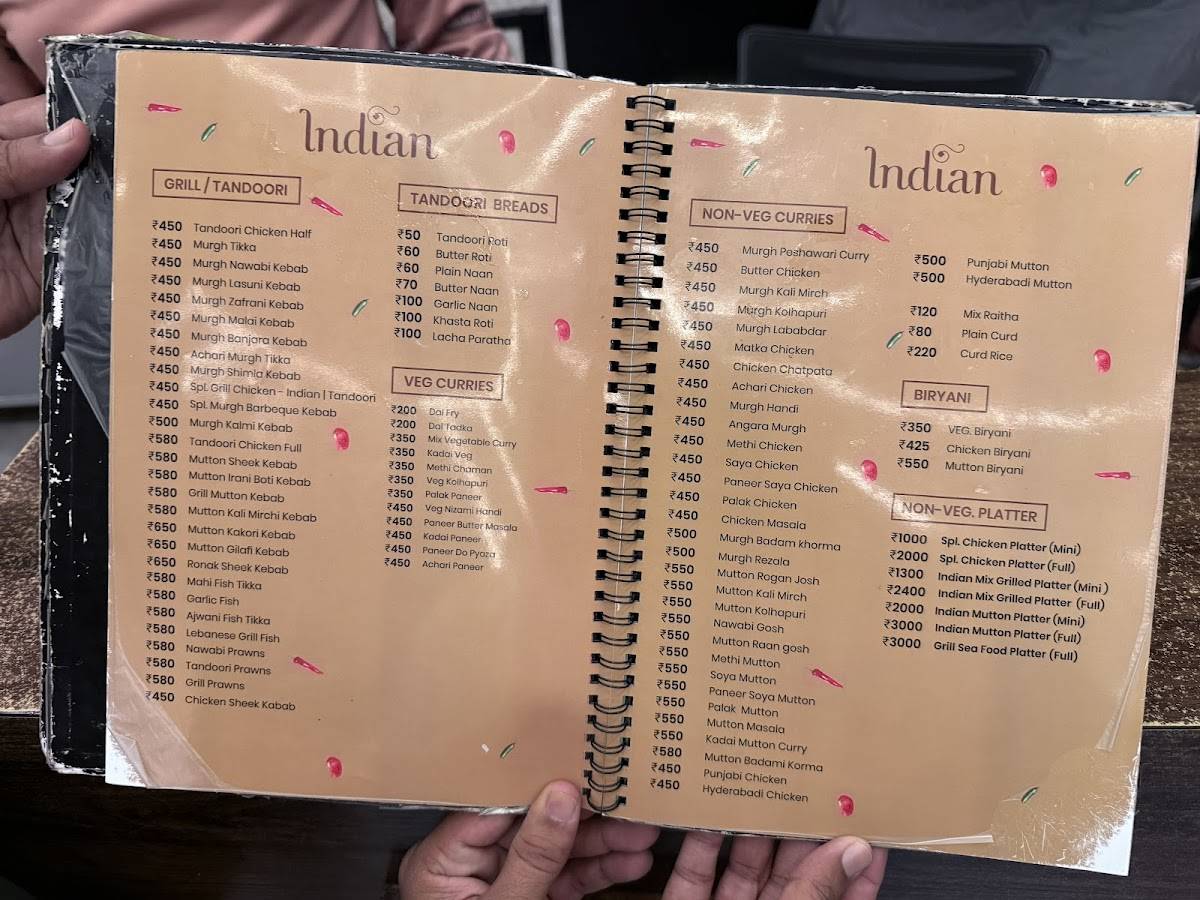 Indian
GRILL / TANDOORI
₹450 Tandoori Chicken Half
₹450 Murgh Tikka
₹450 Murgh Nawabi Kebab
₹450 Murgh Lasuni Kebab
₹450 Murgh Zafrani Kebab
₹450 Murgh Malai Kebab
₹450 Murgh Banjara Kebab
₹450 Achari Murgh Tikka
₹450 Murgh Shimla Kebab
₹450 Spl. Grill Chicken - Indian | Tandoori
₹450 Spl. Murgh Barbeque Kebab
₹500 Murgh Kalmi Kebab
₹580 Tandoori Chicken Full
₹580 Mutton Sheek Kebab
₹580 Mutton Irani Boti Kebab
₹580 Grill Mutton Kebab
₹580 Mutton Kali Mirchi Kebab
₹650 Mutton Kakori Kebab
₹650 Mutton Gilafi Kebab
₹650 Ronak Sheek Kebab
₹580 Mahi Fish Tikka
₹580 Garlic Fish
₹580 Ajwani Fish Tikka
₹580 Lebanese Grill Fish
₹580 Nawabi Prawns
₹580 Tandoori Prawns
₹580 Grill Prawns
₹450 Chicken Sheek Kabab
TANDOORI BREADS
₹50 Tandoori Roti
₹60 Butter Roti
₹60 Plain Naan
₹70 Butter Naan
₹100 Garlic Naan
₹100 Khasta Roti
₹100 Lacha Paratha
VEG CURRIES
₹200 Dal Fry
₹200 Dal Tadka
₹350 Mix Vegetable Curry
₹350 Kadai Veg
₹350 Methi Chaman
₹350 Veg Kolhapuri
₹350 Palak Paneer
₹450 Veg Nizami Handi
₹450 Paneer Butter Masala
₹450 Kadai Paneer
₹450 Paneer Do Pyaza
₹450 Achari Paneer
Indian
NON-VEG CURRIES
₹450 Murgh Peshawari Curry
₹450 Butter Chicken
₹450 Murgh Kali Mirch
₹450 Murgh Kolhapuri
₹450 Murgh Lababdar
₹450 Matka Chicken
₹450 Chicken Chatpata
₹450 Achari Chicken
₹450 Murgh Handi
₹450 Angara Murgh
₹450 Methi Chicken
₹450 Saya Chicken
₹450 Paneer Saya Chicken
₹450 Palak Chicken
₹450 Chicken Masala
₹500 Murgh Badam khorma
₹500 Murgh Rezala
₹550 Mutton Rogan Josh
₹550 Mutton Kali Mirch
₹550 Mutton Kolhapuri
₹550 Nawabi Gosh
₹550 Mutton Raan gosh
₹550 Methi Mutton
₹550 Soya Mutton
₹550 Paneer Soya Mutton
₹550 Palak Mutton
₹550 Mutton Masala
₹550 Kadai Mutton Curry
₹580 Mutton Badami Korma
₹450 Punjabi Chicken
₹450 Hyderabadi Chicken
₹500 Punjabi Mutton
₹500 Hyderabadi Mutton
₹120 Mix Raitha
₹80 Plain Curd
₹220 Curd Rice
BIRYANI
₹350 VEG. Biryani
₹425 Chicken Biryani
₹550 Mutton Biryani
NON-VEG. PLATTER
₹1000 Spl. Chicken Platter (Mini)
₹2000 Spl. Chicken Platter (Full)
₹1300 Indian Mix Grilled Platter (Mini )
₹2400 Indian Mix Grilled Platter (Full)
₹2000 Indian Mutton Platter (Mini)
₹3000 Indian Mutton Platter (Full)
₹3000 Grill Sea Food Platter (Full)